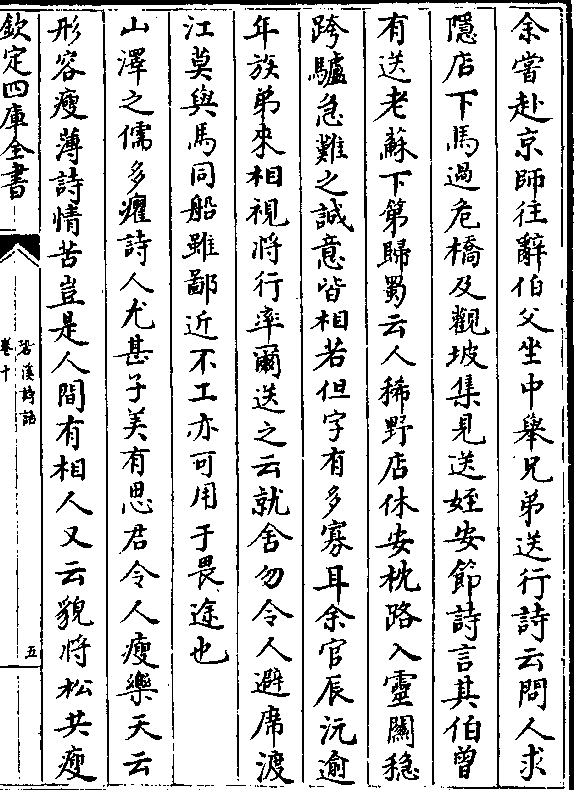 余嘗赴京師往辭伯父坐中舉兄弟送行詩云問人求
隱店下馬過危橋及觀坡集見送姪安節詩言其伯曽
有送老蘇下第歸蜀云人稀野店休安枕路入靈關穏
跨驢急難之誠意皆相若但字有多寡耳余官辰沅逾
年族弟來相視將行率爾送之云就舍勿令人避席渡
江莫與馬同船雖鄙近不工亦可用于畏途也
山澤之儒多癯詩人尤甚子美有思君令人瘦樂天云
形容瘦薄詩情苦豈是人間有相人又云貌將松共瘦
欽定四庫全書
䂬溪詩話
卷十
五